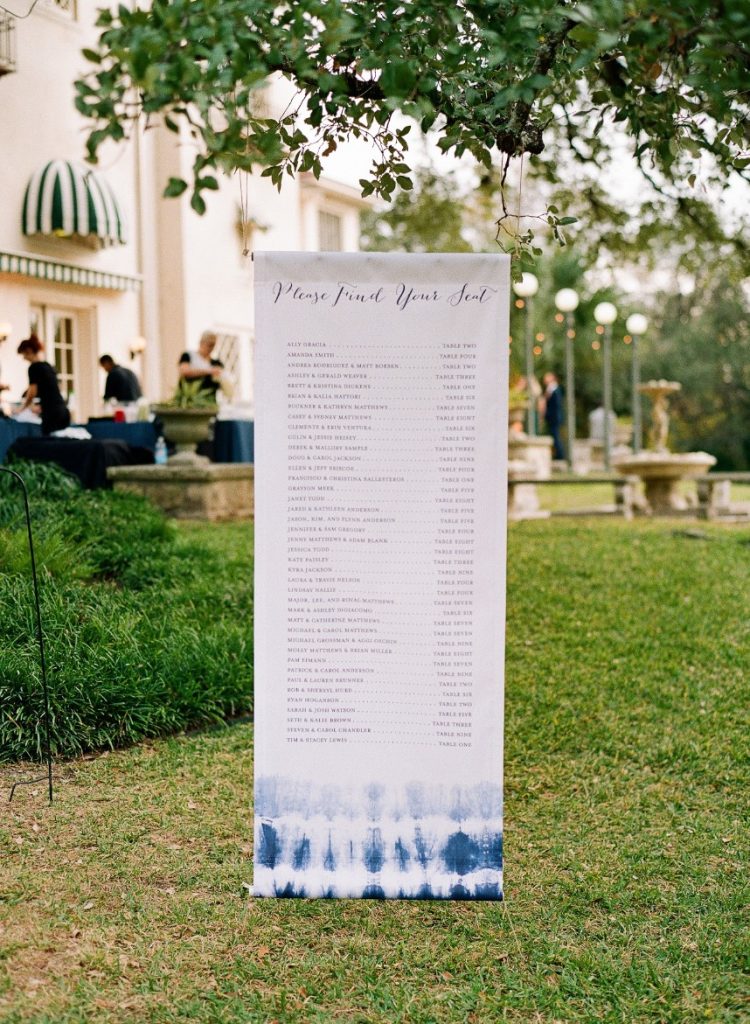 Please Find Your Seat
ALLY GRACIA . . . TABLE TWO
AMANDA SMITH . . . TABLE FOUR
ANDREA RODRIGUEZ & MATT BORREN . . . TABLE TWO
ASHLEY & GERALD WEAVER . . . TABLE THREE
BRETT & KRISTINA DICKENS . . . TABLE ONE
BRIAN & KALIA HATFORT . . . TABLE SIX
BUCKNER & KATHRYN MATTHEWS . . . TABLE SEVEN
CASEY & SYDNEY MATTHEWS . . . TABLE EIGHT
CLEMENTE & ERIN VENTURA . . . TABLE SIX
COLIN & JESSIE HEISEY . . . TABLE TWO
DEREK & MALLORY SAMPLE . . . TABLE THREE
DOUG & CAROL JACKSON . . . TABLE SIX
ELLEN & JEFF BRISCOE . . . TABLE FOUR
FRANCISCO & CHRISTINA BALLESTEROS . . . TABLE ONE
GRAYSON MEEK . . . TABLE FIVE
JANET TODD . . . TABLE EIGHT
JARED & KATHLEEN ANDERSON . . . TABLE FIVE
JASON, KIM, AND FLYNN ANDERSON . . . TABLE FIVE
JENNIFER & SAM GREGORY . . . TABLE FOUR
JENNY MATTHEWS & ADAM BLANK . . . TABLE EIGHT
JESSICA TODD . . . TABLE EIGHT
KATE PAISLEY . . . TABLE THREE
KYRA JACKSON . . . TABLE NINE
LAURA & TRAVIS NELSON . . . TABLE FOUR
LINDSAY NALLIE . . . TABLE FOUR
MAJOR, LEE, AND ROYAL MATTHEWS . . . TABLE SEVEN
MARK & ASHLEY DIGIACOMO . . . TABLE SIX
MATT & CATHERINE MATTHEWS . . . TABLE SEVEN
MICHAEL & CAROL MATTHEWS . . . TABLE SEVEN
MICHAEL GROSSMAN & AGGI OKCHIN . . . TABLE NINE
MOLLY MATTHEWS & BRIAN MILLER . . . TABLE EIGHT
PAM SIMANN . . . TABLE SEVEN
PATRICK & CAROL ANDERSON . . . TABLE NINE
PAUL & LAUREN BRUNNER . . . TABLE TWO
ROB & SHERRYL HURD . . . TABLE SIX
RYAN HOGANSON . . . TABLE TWO
SARAH & JOSH WATSON . . . TABLE FIVE
SETH & KALIE BROWN . . . TABLE THREE
STEVEN & CAROL CHANDLER . . . TABLE NINE
TIM & STACEY LEWIS . . . TABLE ONE